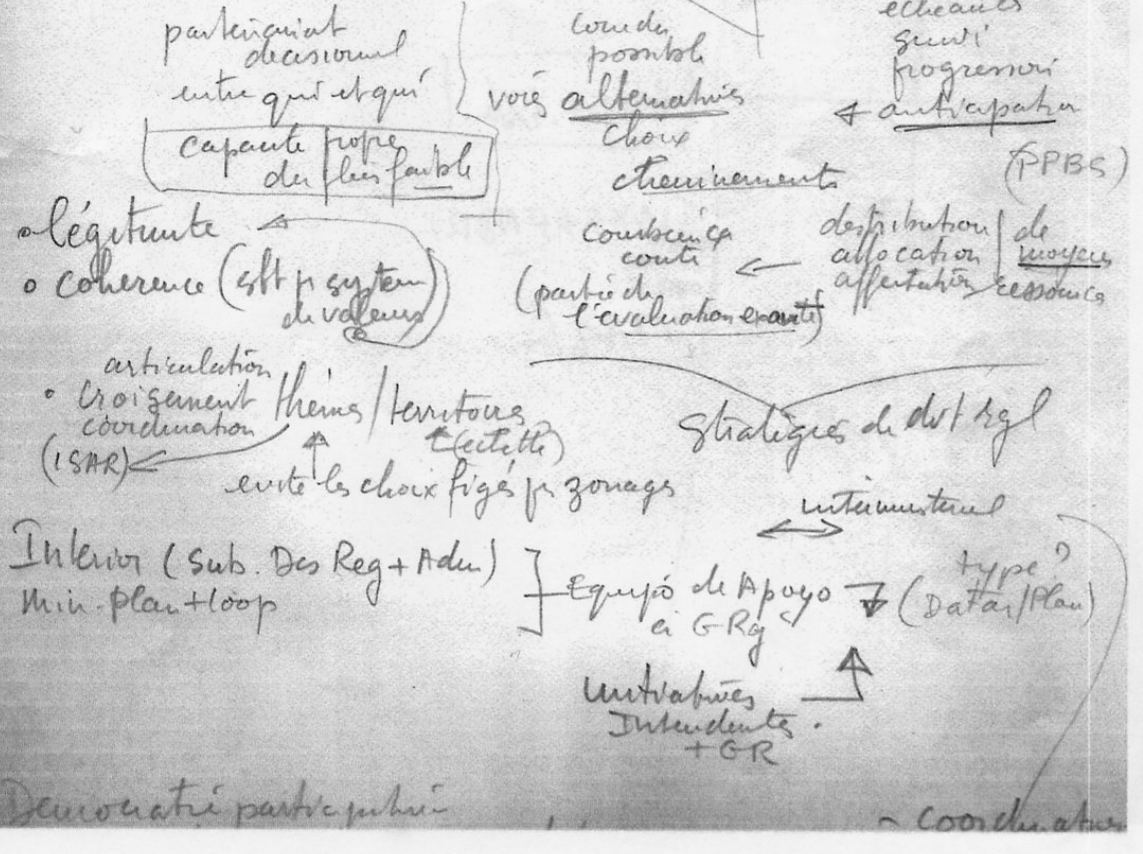 partenariat
décisionnel
entre qui et qui
capacité propre
du plus faible
possible
voies alternatives
choix
cheminements
échéances
suivi
progression
anticipation
(PPBS)
• légitimité
• cohérence (sft pr system
de valeurs)
coûts
(partie de
l'évaluation ex ante)
distribution
allocation
affectation
de
moyens
ressources
articulation
• croisement thèmes/territoires
coordination
(ISAR)
évite les choix figés pr zonages
stratégies de dvt rgl
interministériel
Interior (Sub. Des Reg + Adm)
Min. Plan + Coop
Equipo de Apoyo
a GRg
type?
(Datar/Plan)
initiatives
Intendentes
+ GR
Démocratie participative
- coordinateur